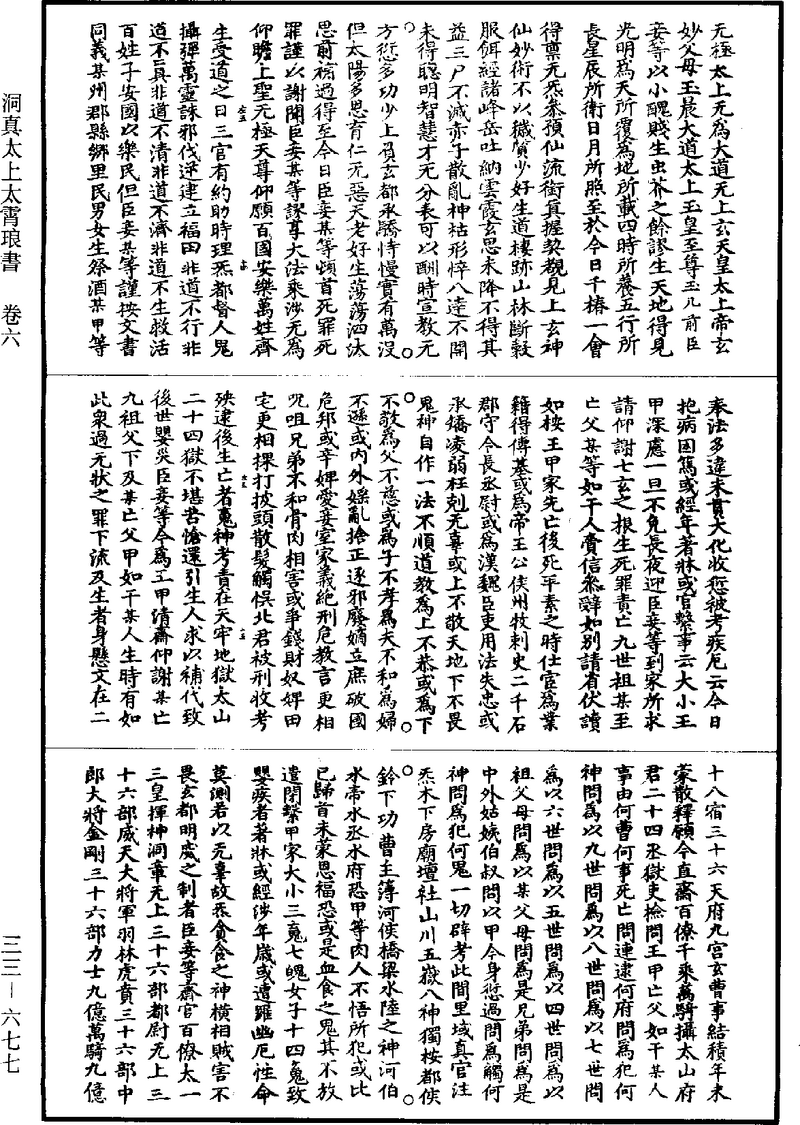 洞真太上太霄琅書　卷六
三三—六七七
无極太上无為大道无上玄天皇太上帝玄
妙父母玉晨大道太上玉皇至尊玉几前臣
妾等以小醜賤生虫芥之餘謬生天地得見
光明為天所覆為地所載四時所養五行所
長星辰所衛日月所照至於今日千椿一會
得稟元炁叅預仙流銜真握契覩見上玄神
仙妙術不以穢質少好生道棲跡山林斷穀
服餌經諸峰岳吐納雲霞玄思未降不得其
益三尸不滅亦于散亂神祜形悴八達不開
未得聰明智慧才无分表可以酬時宣教元
方愆多功少上負玄都承驕恃慢實有萬沒
但太陽多思育仁无惡天老好生蕩蕩洒汰
思前禱過得至今日臣妾某等頓首死罪死
罪謹以謝聞臣妾某等謬尊大法乘涉无為
仰瞻上聖无極天尊仰願百國安樂萬姓齊
生受道之日三官有約助時理炁都督人鬼
攝殫萬靈誅邪伐逆建立福田非道不行非
道不真非道不清非道不濟非道不生救活
百姓子安國以樂民但臣妾某等謹按文書
同義某州郡縣鄉里民男女生祭酒某甲等
奉法多違未貫大化收愆被考疾厄云今日
抱病困篤或經年著牀或官繫事云大小王
甲深慮一旦不免長夜迎臣妾等到家所求
請仰謝七玄之根生死罪責亡九世祖某至
亡父某等如干人賫信叅辤如別請省伏讀
如按王甲家先亡後死平素之時仕宦為業
籍得傳墓或為帝王公侯州牧刺史二千石
郡守令長丞尉或為漢魏臣吏用法失忠或
承嬌凌弱枉剋无辜或上不敬天地下不畏
鬼神自作一法不順道教為上不恭或為下
不敬為父不慈或為子不孝為夫不和為婦
不遜或內外媟亂捨正逐邪廢嫡立庶破國
危邦或辛婢愛妾室家義絶刑危教言更相
呪咀兄弟不和骨肉相害或爭錢財奴婢田
宅更相捶打披頭散髮觸悞北君被刑收考
殃逮後生亡者䰟神考責在天牢地獄太山
二十四獄不堪苦愴還引生人求以補代致
後世嬰災臣妾等今為王甲清齋仰謝某亡
九祖父下及某亡父甲如干某人生時有如
此衆過元狀之罪下流及生者身懸文在二
十八宿三十六天府九宮玄曹事結積年未
蒙散釋願今直齋百僚千乘萬騎攝太山府
君二十四丞獄吏檢問王甲亡父如干某人
事由何曹何事死亡問連逮何府問為犯何
神問為以九世問為以八世問為以七世問
為以六世問為以五世問為以四世問為以
祖父母問為以某父母問為是兄弟問為是
中外姑娣伯叔問以甲今身愆過問為觸何
神問為犯何鬼一切辟考此間里域真官注
炁木下房廟壇社山川五嶽八神獨桉都侯
鈴下功曹主簿河侯橋梁水陸之神河伯
水帝水丞水府恐甲等肉人不悟所犯或比
已歸首未蒙恩福恐或是血食之鬼其不放
遣閉繫甲家大小三䰟七魄女子十四䰟致
嬰疾者著牀或經涉年歲或遭羅幽厄性命
莫測若以无辜故炁貪食之神橫相賊害不
畏玄都明威之制者臣妾等齋官百僚太一
三皇揮神洞章无上三十六部都尉无上三
十六部威天大將軍羽林虎賁三十六部中
郎大將金剛三十六部力士九億萬騎九億